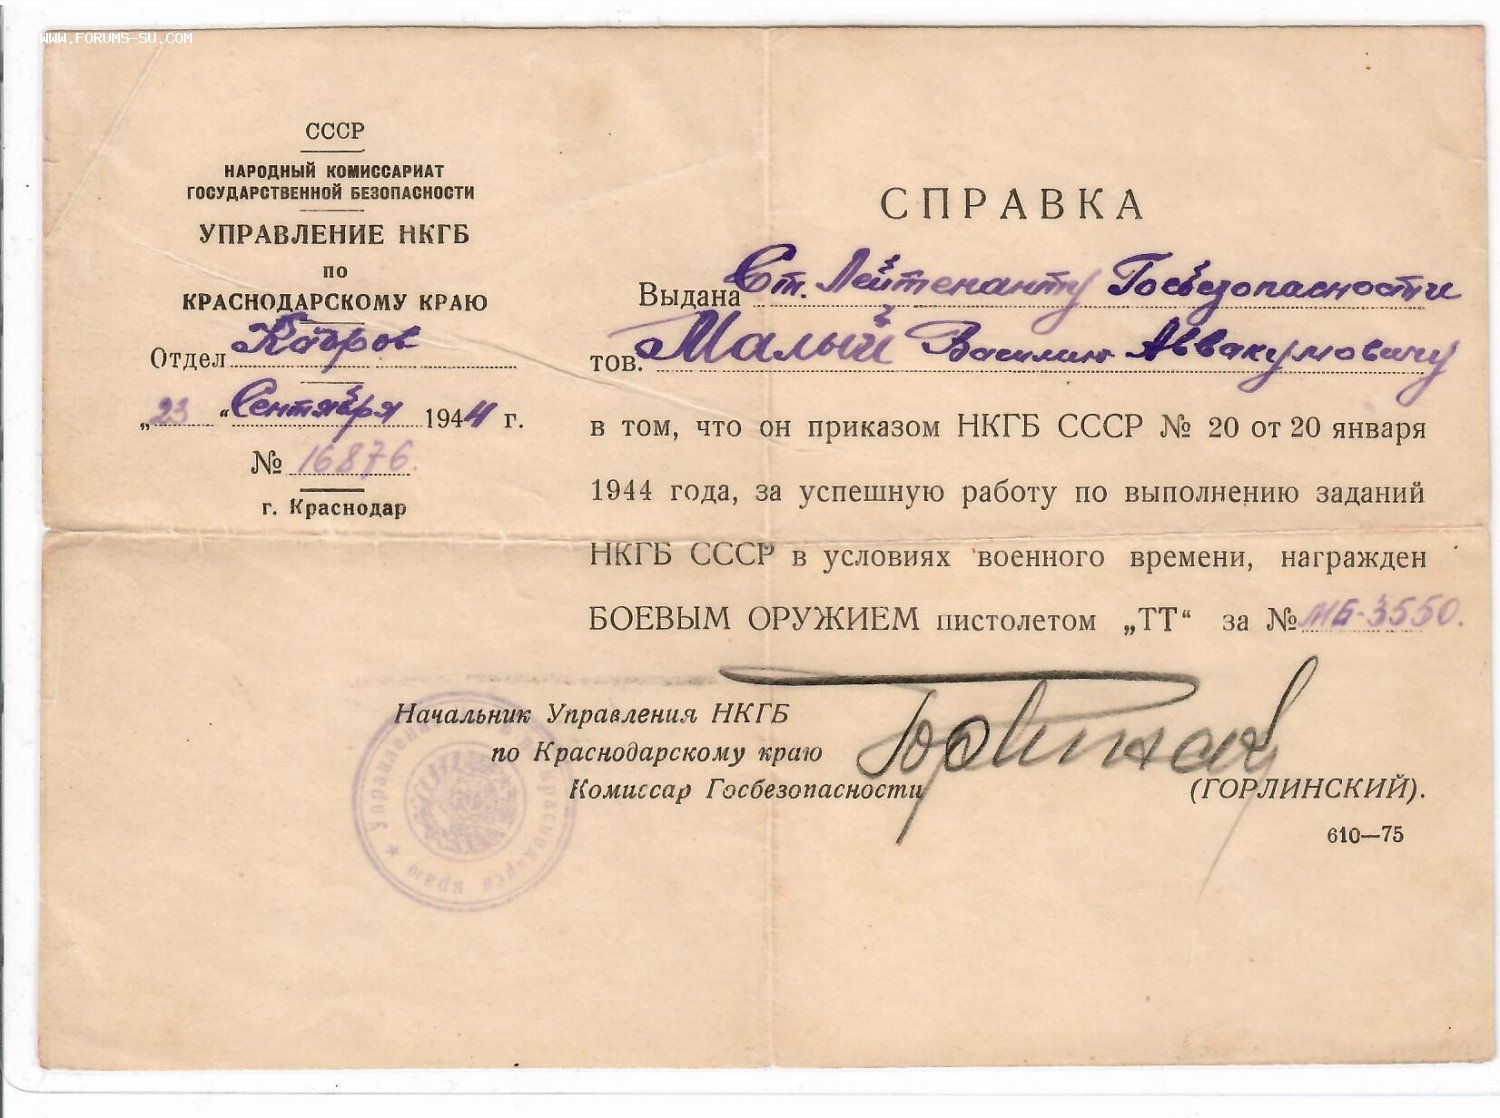 WWW.FORUMS-SU.COM
СССР
НАРОДНЫЙ КОМИССАРИАТ
ГОСУДАРСТВЕННОЙ БЕЗОПАСНОСТИ
УПРАВЛЕНИЕ НКГБ
ПО
КРАСНОДАРСКОМУ КРАЮ
Отдел Кадров
„23 “ Сентября 1944 г.
№ 16876.
г. Краснодар
СПРАВКА
Выдана Ст. Лейтенанту Госбезопасности
тов. Малый Василию Аввакумовичу
в том, что он приказом НКГБ СССР № 20 от 20 января
1944 года, за успешную работу по выполнению заданий
НКГБ СССР в условиях военного времени, награжден
БОЕВЫМ ОРУЖИЕМ пистолетом „ТТ“ за № МБ-3550.
Начальник Управления НКГБ
по Краснодарскому краю
Комиссар Госбезопасности
(ГОРЛИНСКИЙ).
610—75